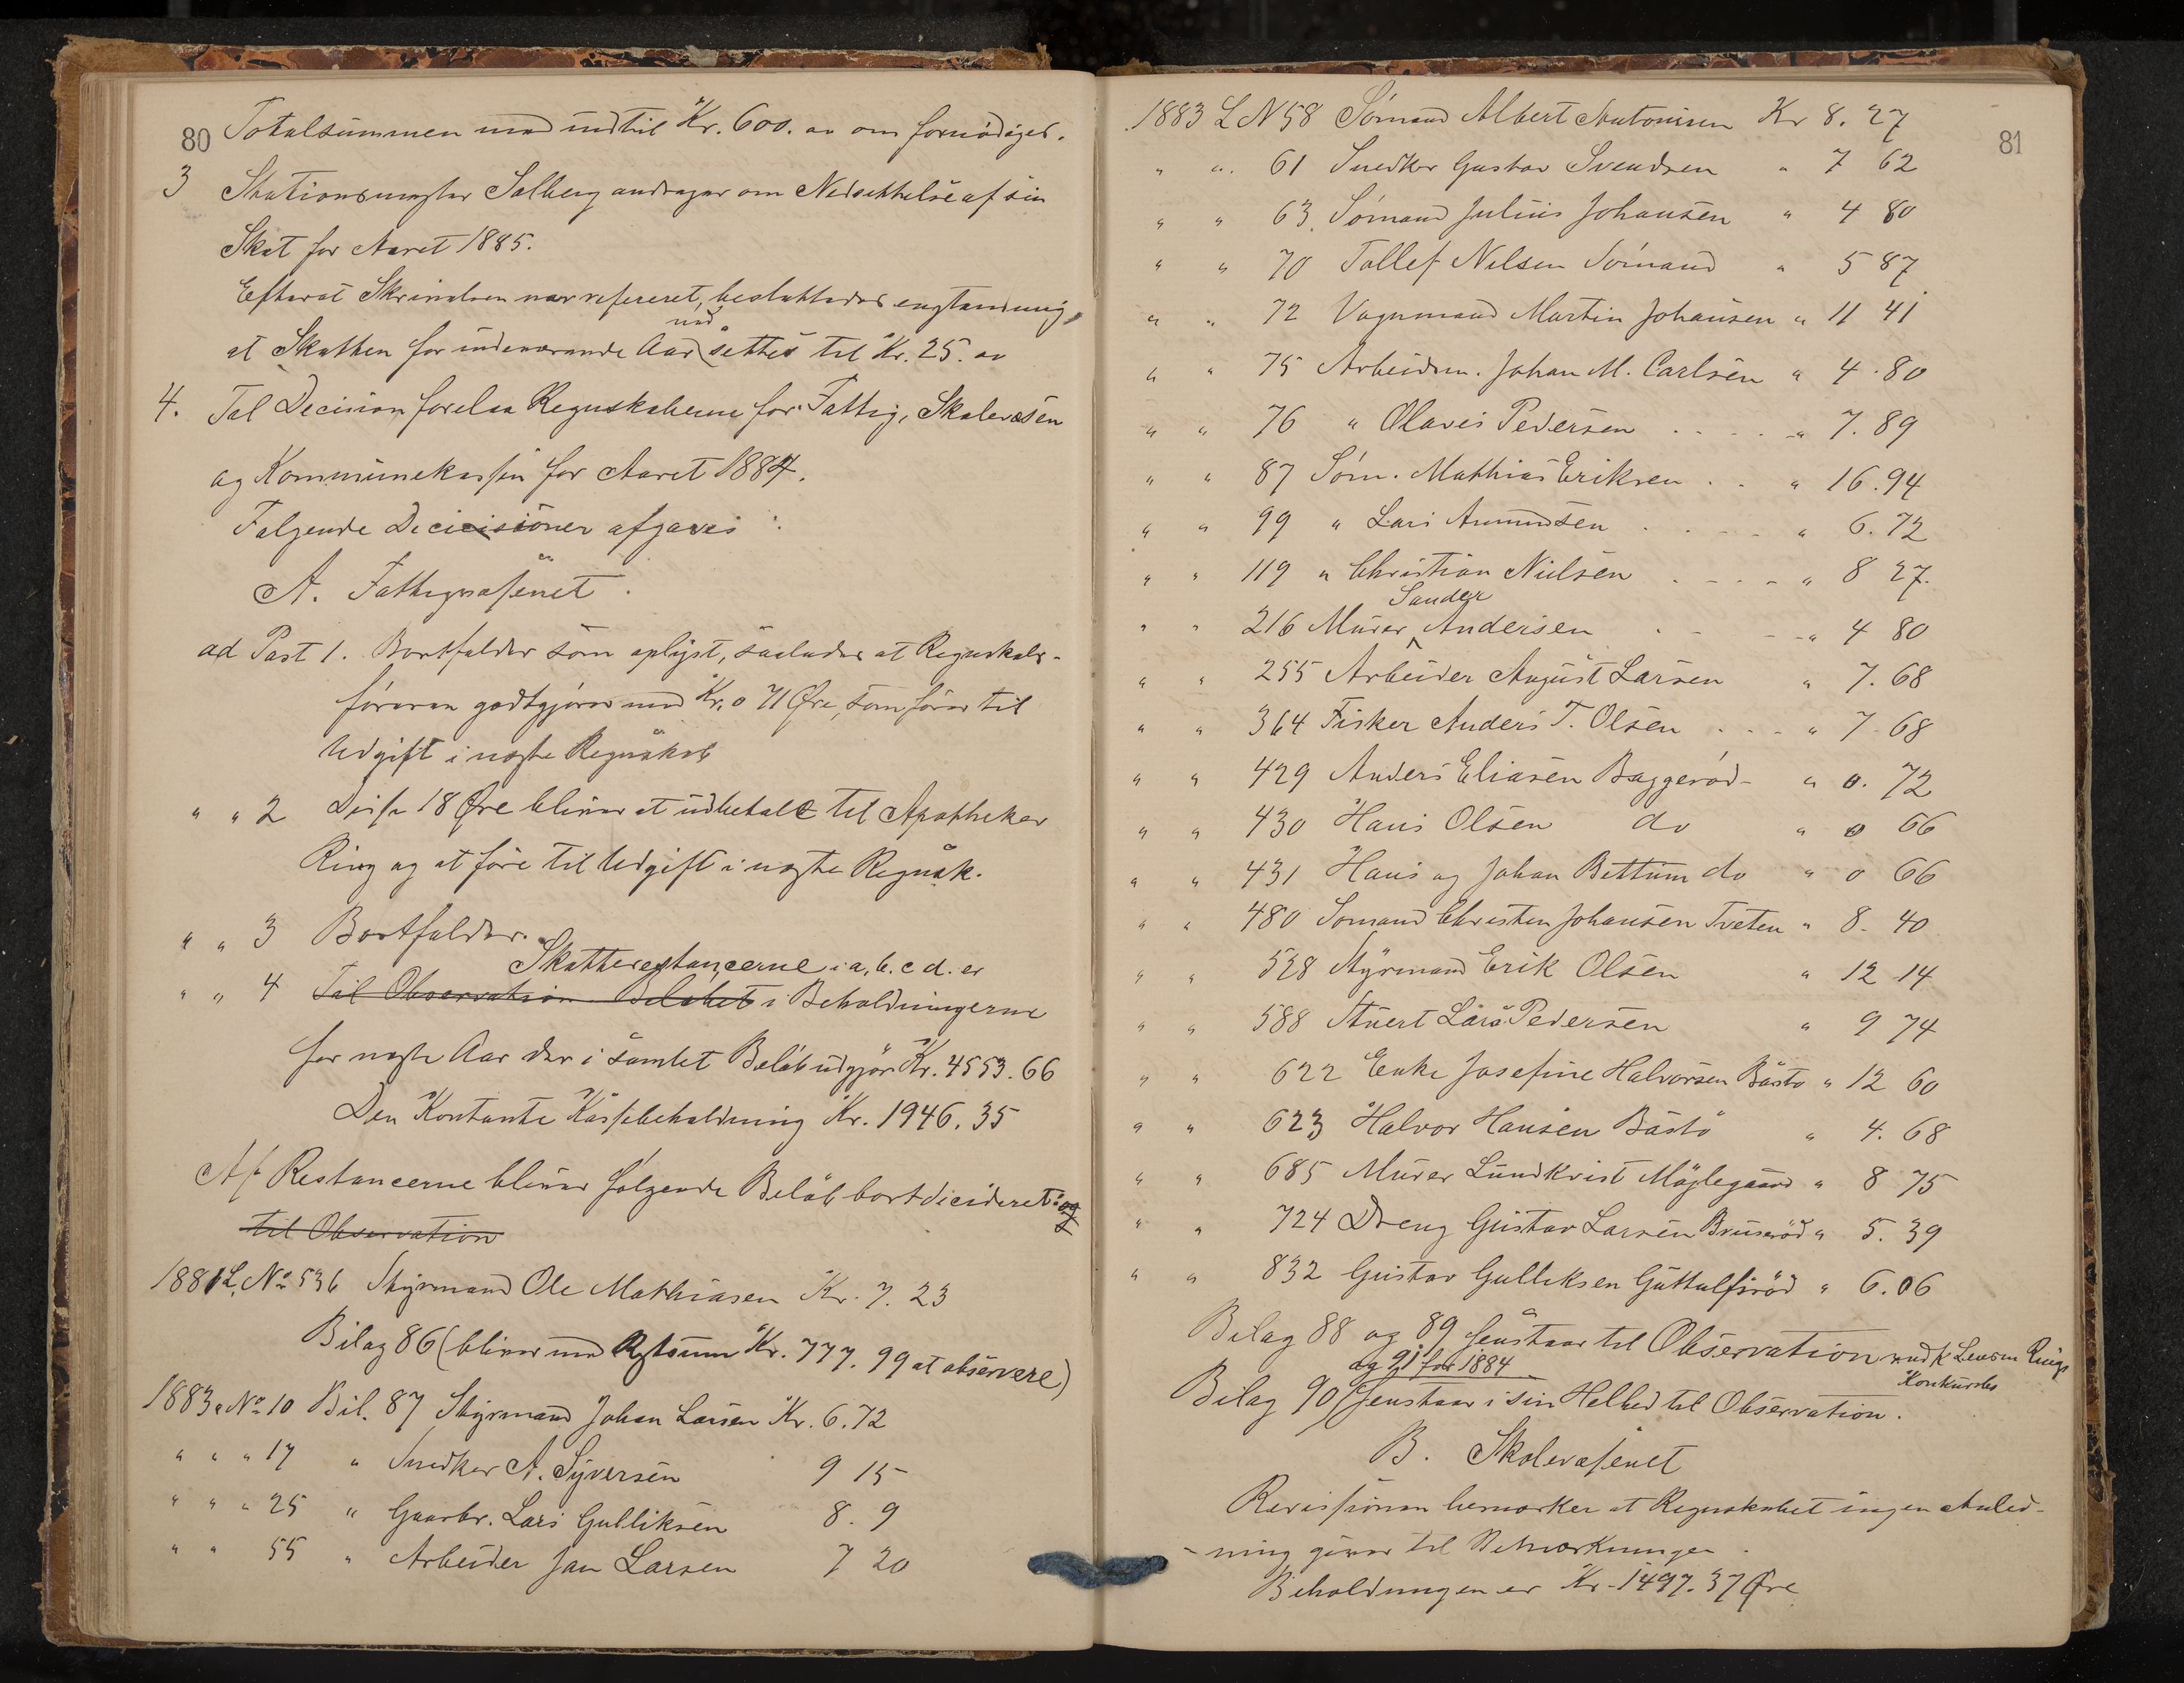 80
Totalsummen med indtil Kr. 600. 00 om fornødiges.
3 Stationsmester Solberg andrager om Nedsettelse af sin
Skat for Aaret 1885.
Efterat Skrivelsen var refereret, besluttedes enstemmig,
ned
at Skatten for indeværende Aar settes til Kr. 25. 00
4. Til Decision forelaa Regnskaberne for Fattig, Skolevæsen
og Kommunekassen for Aaret 1884.
Følgende Decisioner afgaves :
A. Fattigvæsenet.
ad Post 1. Bortfalder som oplyst, saaledes at Regnskabs-
føreren godtgjøres med Kr. 0 71 Øre, som føres til
Udgift i næste Regnskab
" " 2 Disse 18 Øre bliver at udbetale til Apotheker
Ring og at føre til Udgift i næste Regnsk.
" " 3 Bortfalder.
Skatterestancerne i a, b. c d. er
" " 4 Til Observation Beløbet i Beholdningerne
for næste Aar der i samlet Beløb udgjør Kr. 4553. 66
Den Kontante Kassebeholdning Kr. 1946. 35
Af Restancerne bliver følgende Beløb bortdicideret: og
til Observation
1881 L. No 536 Styrmand Ole Mathiasen Kr. 7. 23
Bilag 86 (bliver med Kr. 777. 99 at observere)
1883 " No 10 Bil. 87 Styrmand Johan Larsen Kr. 6. 72
" " " 17 " Snedker A. Syversen 9 15
" " " 25 " Gaarbr. Lars Gulliksen 8. 9
" " 55 " Arbeider Jan Larsen 7 20
81
1883 L N 58 Sømand Albert Antonisen Kr 8. 27
" " 61 Snedker Gustav Svendsen " 7 62
" " 63. Sømand Julius Johansen " 4 80
" " 70 Tollef Nilsen Sømand " 5 87
" " 72 Vognmand Martin Johansen " 11 41
" " 75 Arbeidsm. Johan M. Carlsen " 4. 80
" " 76 " Olaves Pedersen " 7. 89
" " 87 Søm. Mathias Eriksen " 16. 94
" " 99 " Lars Amundsen " 6. 72
" " 119 " Christian Nielsen " 8 27.
Sander
" " 216 Murer Andersen " 4 80
" " 255 Arbeider August Larsen " 7. 68
" " 364 Fisker Anders T. Olsen " 7. 68
" " 429 Anders Eliasen Baggerød " 0. 72
" " 430 Hans Olsen do " 0 66
" " 431 Hans og Johan Bettum do " 0 66
" " 480 Sømand Christen Johansen Tveten " 8. 40
" " 528 Styrmand Erik Olsen " 12 14
" " 588 Stuert Lars Pedersen " 9 74
" " 622 Enke Josefine Halvorsen Bastø " 12 60
" " 623 Halvor Hansen Bastø " 4. 68
" " 685 Murer Lundkvist Møglegaard " 8 75
" " 724 Dreng Gustav Larsen Bruserød " 5. 39
" " 832 Gustav Gulliksen Guttulfsrød " 6. 06
Bilag 88 og 89 henstaar til Observation Lensm Rings
Konkursbo
og 91 for 1884
Bilag 90 henstaar i sin Helhed til Observation.
B. Skolevæsenet
Revisionen bemærker at Regnskabet ingen Anled-
ning giver til Bemærkninger.
Beholdningen er Kr. 1497. 37 Øre